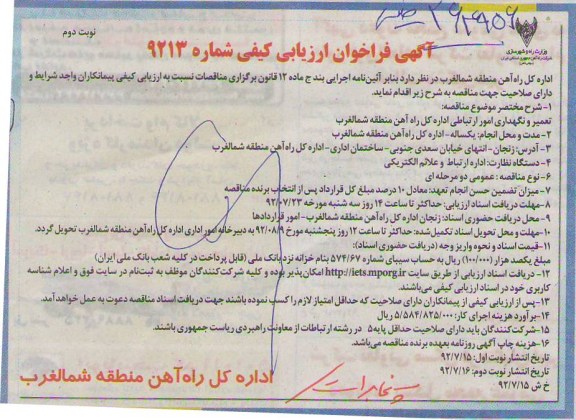 ۲۶۲۹۵۶
نوبت دوم
وزارت راه و شهرسازی
آگهی فراخوان ارزیابی کیفی شماره ۹۲۱۳
اداره کل راه‌آهن منطقه شمالغرب در نظر دارد بنابر آئین‌نامه اجرایی بند ج ماده ۱۲ قانون برگزاری مناقصات نسبت به ارزیابی کیفی پیمانکاران واجد شرایط و
دارای صلاحیت جهت مناقصه به شرح زیر اقدام نماید.
۱- شرح مختصر موضوع مناقصه:
تعمیر و نگهداری امور ارتباطی اداره کل راه آهن منطقه شمالغرب
۲- مدت و محل انجام: یکساله - اداره کل راه‌آهن منطقه شمالغرب
۳- آدرس: زنجان - انتهای خیابان سعدی جنوبی - ساختمان اداری - اداره کل راه‌آهن منطقه شمالغرب
۴- دستگاه نظارت: اداره ارتباط و علائم الکتریکی
۶- نوع مناقصه: عمومی دو مرحله ای
۷- میزان تضمین حسن انجام تعهد: معادل ۱۰ درصد مبلغ کل قرارداد پس از انتخاب برنده مناقصه
۸- مهلت دریافت اسناد ارزیابی: حداکثر تا ساعت ۱۴ روز سه شنبه مورخه ۹۲/۰۷/۲۳
۹- محل دریافت حضوری اسناد: زنجان اداره کل راه‌آهن منطقه شمالغرب - امور قراردادها
۱۰- مهلت و محل تحویل اسناد تکمیل‌شده: حداکثر تا ساعت ۱۲ روز پنجشنبه مورخ ۹۲/۰۸/۹ به دبیرخانه امور اداری اداره کل راه‌آهن منطقه شمالغرب تحویل گردد.
۱۱- قیمت اسناد و نحوه واریز وجه (دریافت حضوری اسناد):
مبلغ یکصد هزار (۱۰۰/۰۰۰) ریال به حساب سیبای شماره ۵۷۴/۶۷ بنام خزانه نزد بانک ملی (قابل پرداخت در کلیه شعب بانک ملی ایران)
۱۲- دریافت اسناد ارزیابی از طریق سایت http://iets.mporg.ir امکان‌پذیر بوده و کلیه شرکت‌کنندگان موظف به ثبت‌نام در سایت فوق و اعلام شناسه
کاربری خود در اسناد ارزیابی کیفی می‌باشند.
۱۳- پس از ارزیابی کیفی از پیمانکاران دارای صلاحیت که حداقل امتیاز لازم را کسب نموده باشند جهت دریافت اسناد مناقصه دعوت به عمل خواهد آمد.
۱۴- برآورد هزینه اجرای کار: ۵/۵۸۴/۸۲۵/۰۰۰ ریال
۱۵- شرکت‌کنندگان باید دارای صلاحیت حداقل پایه ۵ در رشته ارتباطات از معاونت راهبردی ریاست جمهوری باشند.
۱۶- هزینه چاپ آگهی روزنامه بعهده برنده مناقصه می‌باشد.
تاریخ انتشار نوبت اول: ۹۲/۷/۱۵
تاریخ انتشار نوبت دوم: ۹۲/۷/۱۶
خ ش ۹۲/۷/۱۵
اداره کل راه‌آهن منطقه شمالغرب